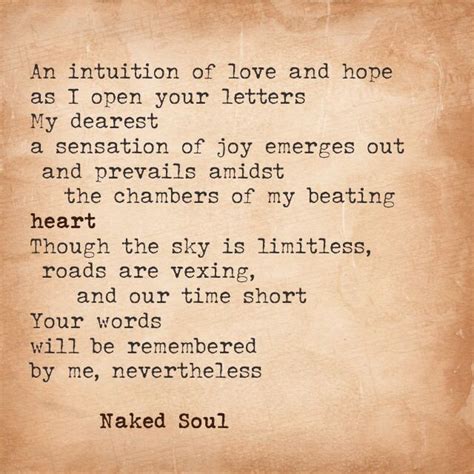 An intuition of love and hope
as I open your letters
My dearest
a sensation of joy emerges out
and prevails amidst
the chambers of my beating
heart
Though the sky is limitless,
roads are vexing,
and our time short
Your words
will be remembered
by me, nevertheless
Naked Soul